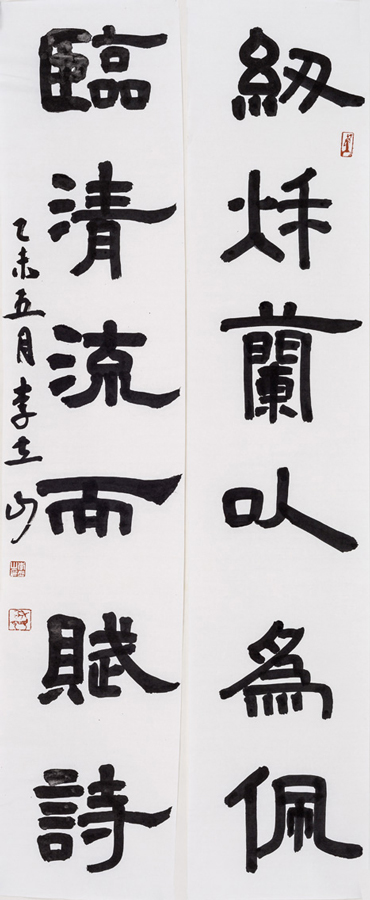 紉秋蘭以為佩
臨清流而賦詩
乙未五月李立山